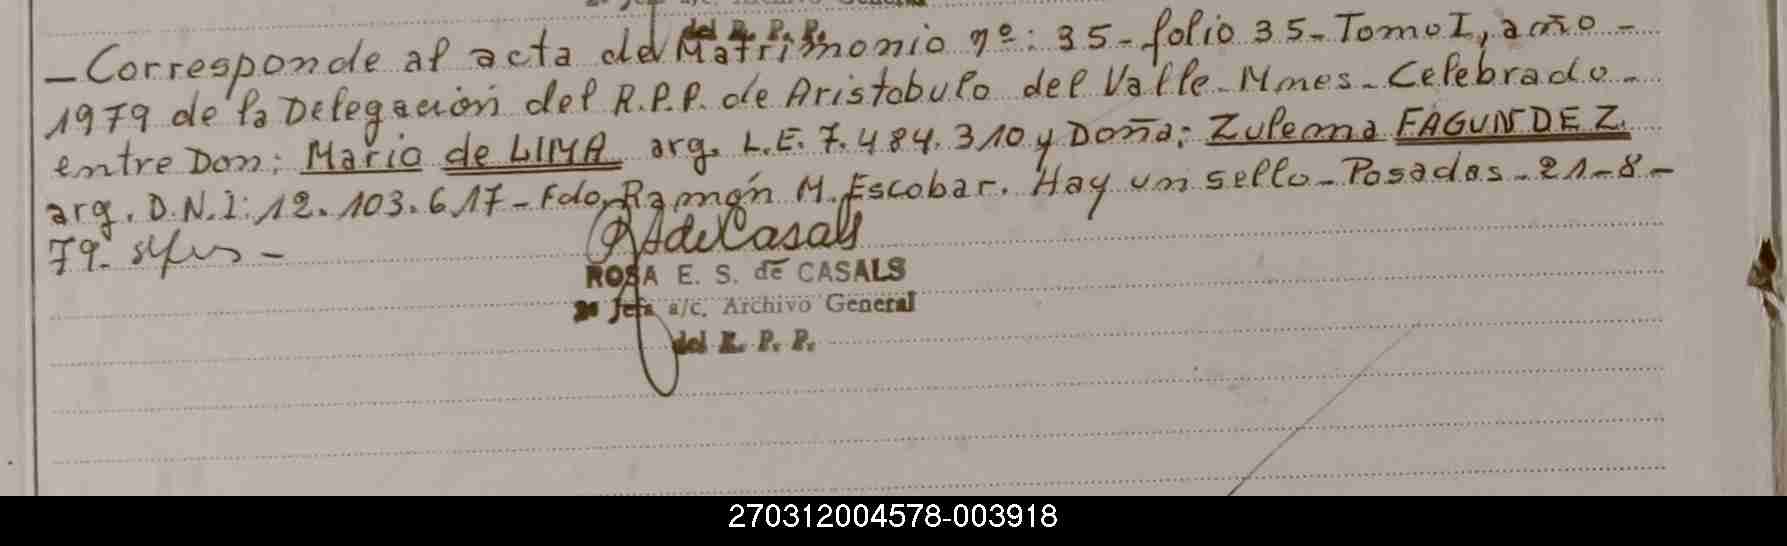 del R. P. P.
— Corresponde al acta de Matrimonio nº: 35 - folio 35 - Tomo I, año -
1979 de la Delegación del R.P.P. de Aristobulo del Valle - Mnes - Celebrado -
entre Don: Mario de LIMA arg. L.E. 7.484.310 y Doña: Zulema FAGUNDEZ
arg. D.N.I: 12.103.617 - Fdo. Ramón M. Escobar. Hay un sello - Posadas - 21-8-
79.
ROSA E. S. de CASALS
2ª Jefa a/c. Archivo General
del R. P. P.
270312004578-003918